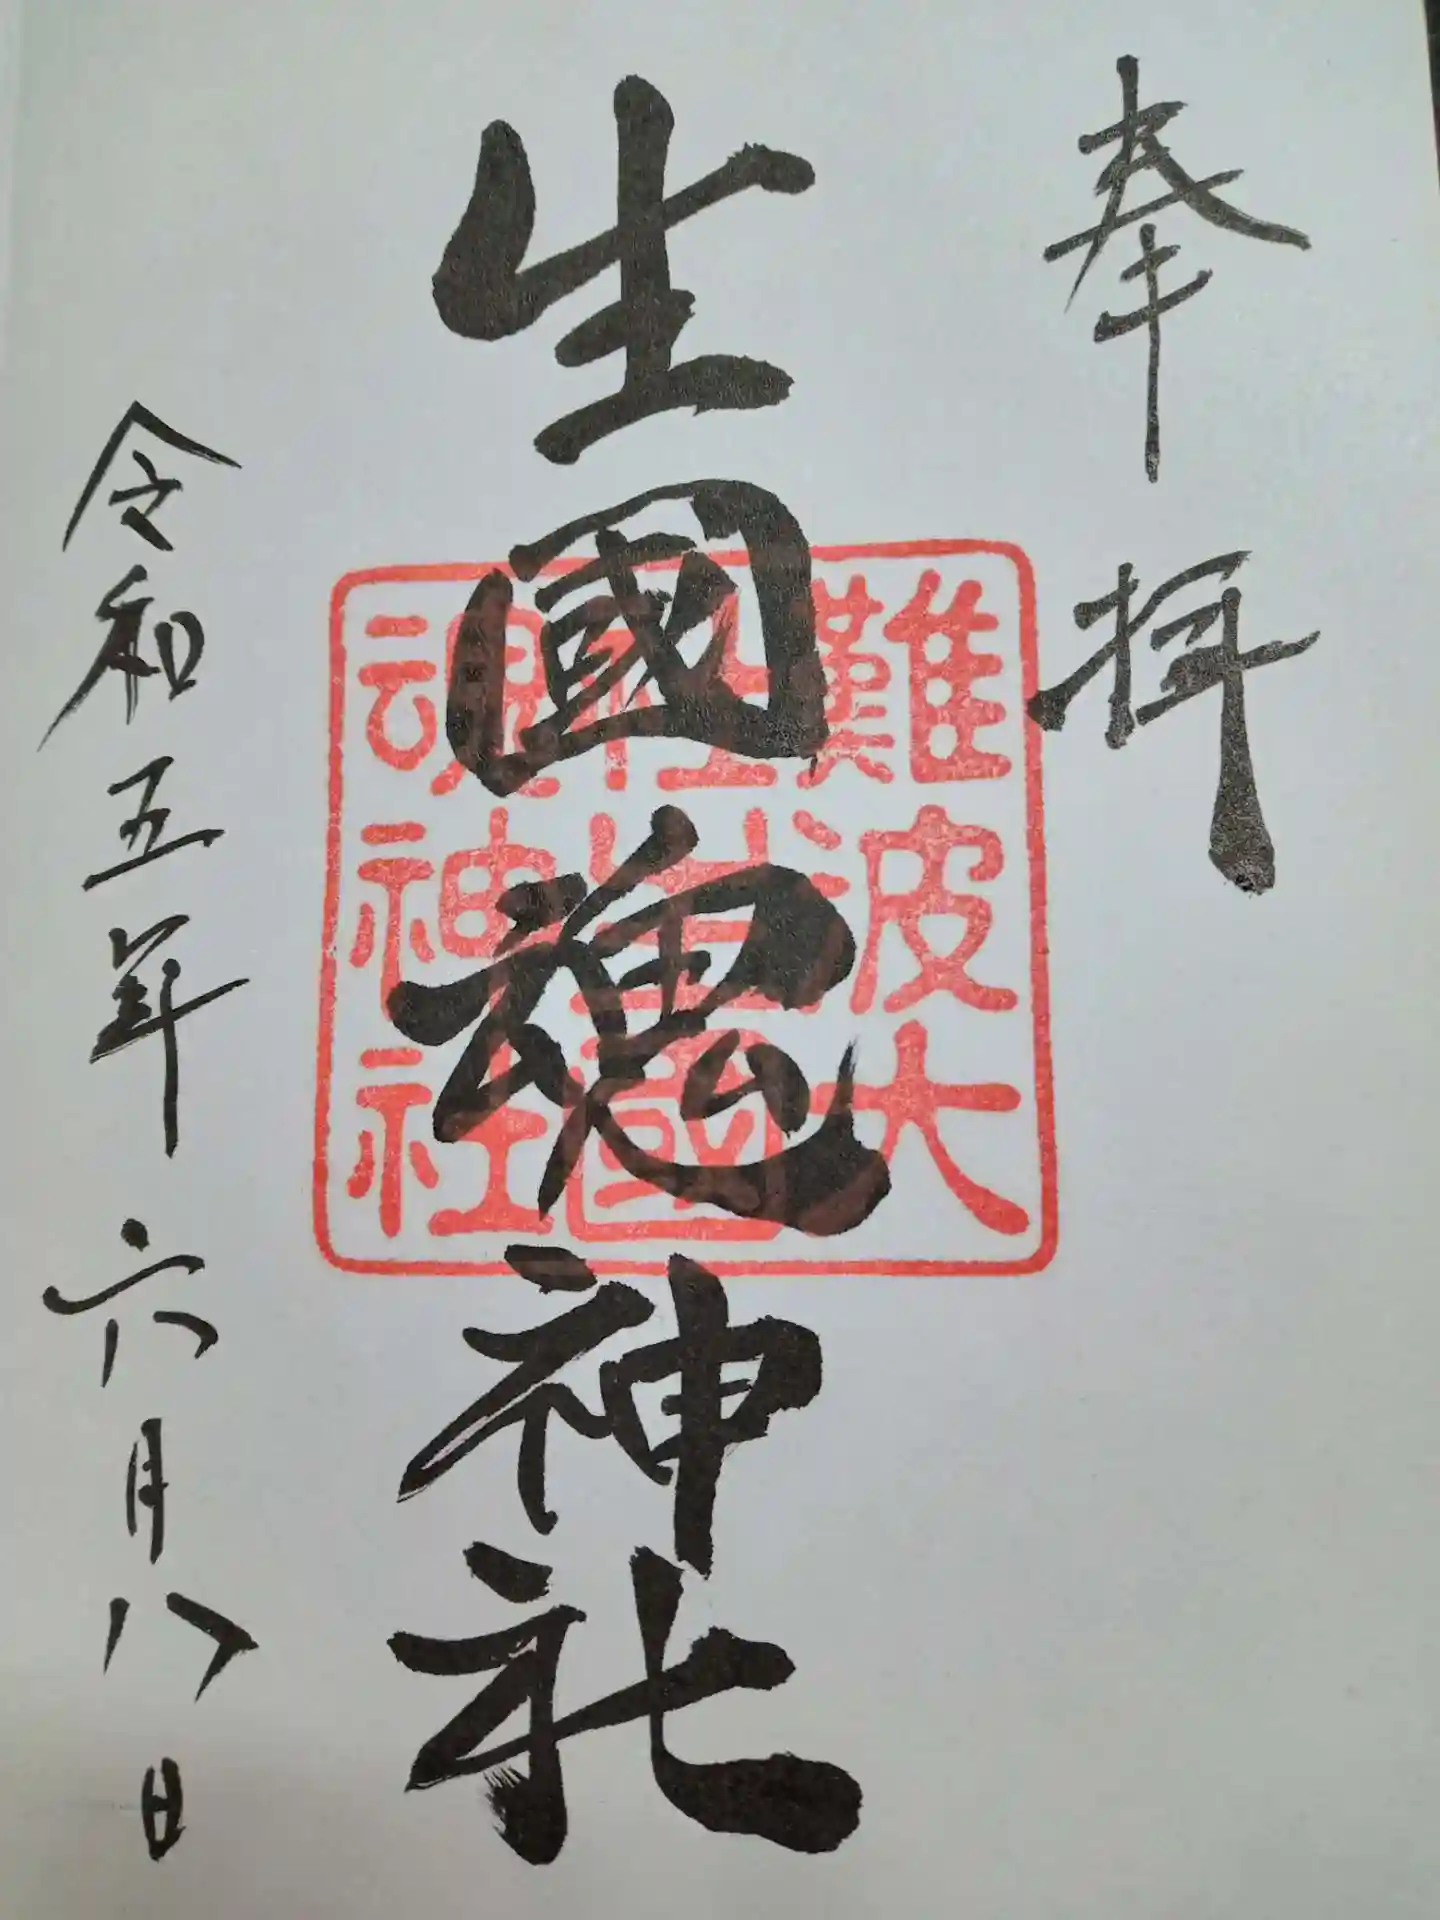 奉拝
生國魂神社
難波大
社生國
魂神社
令和五年六月八日